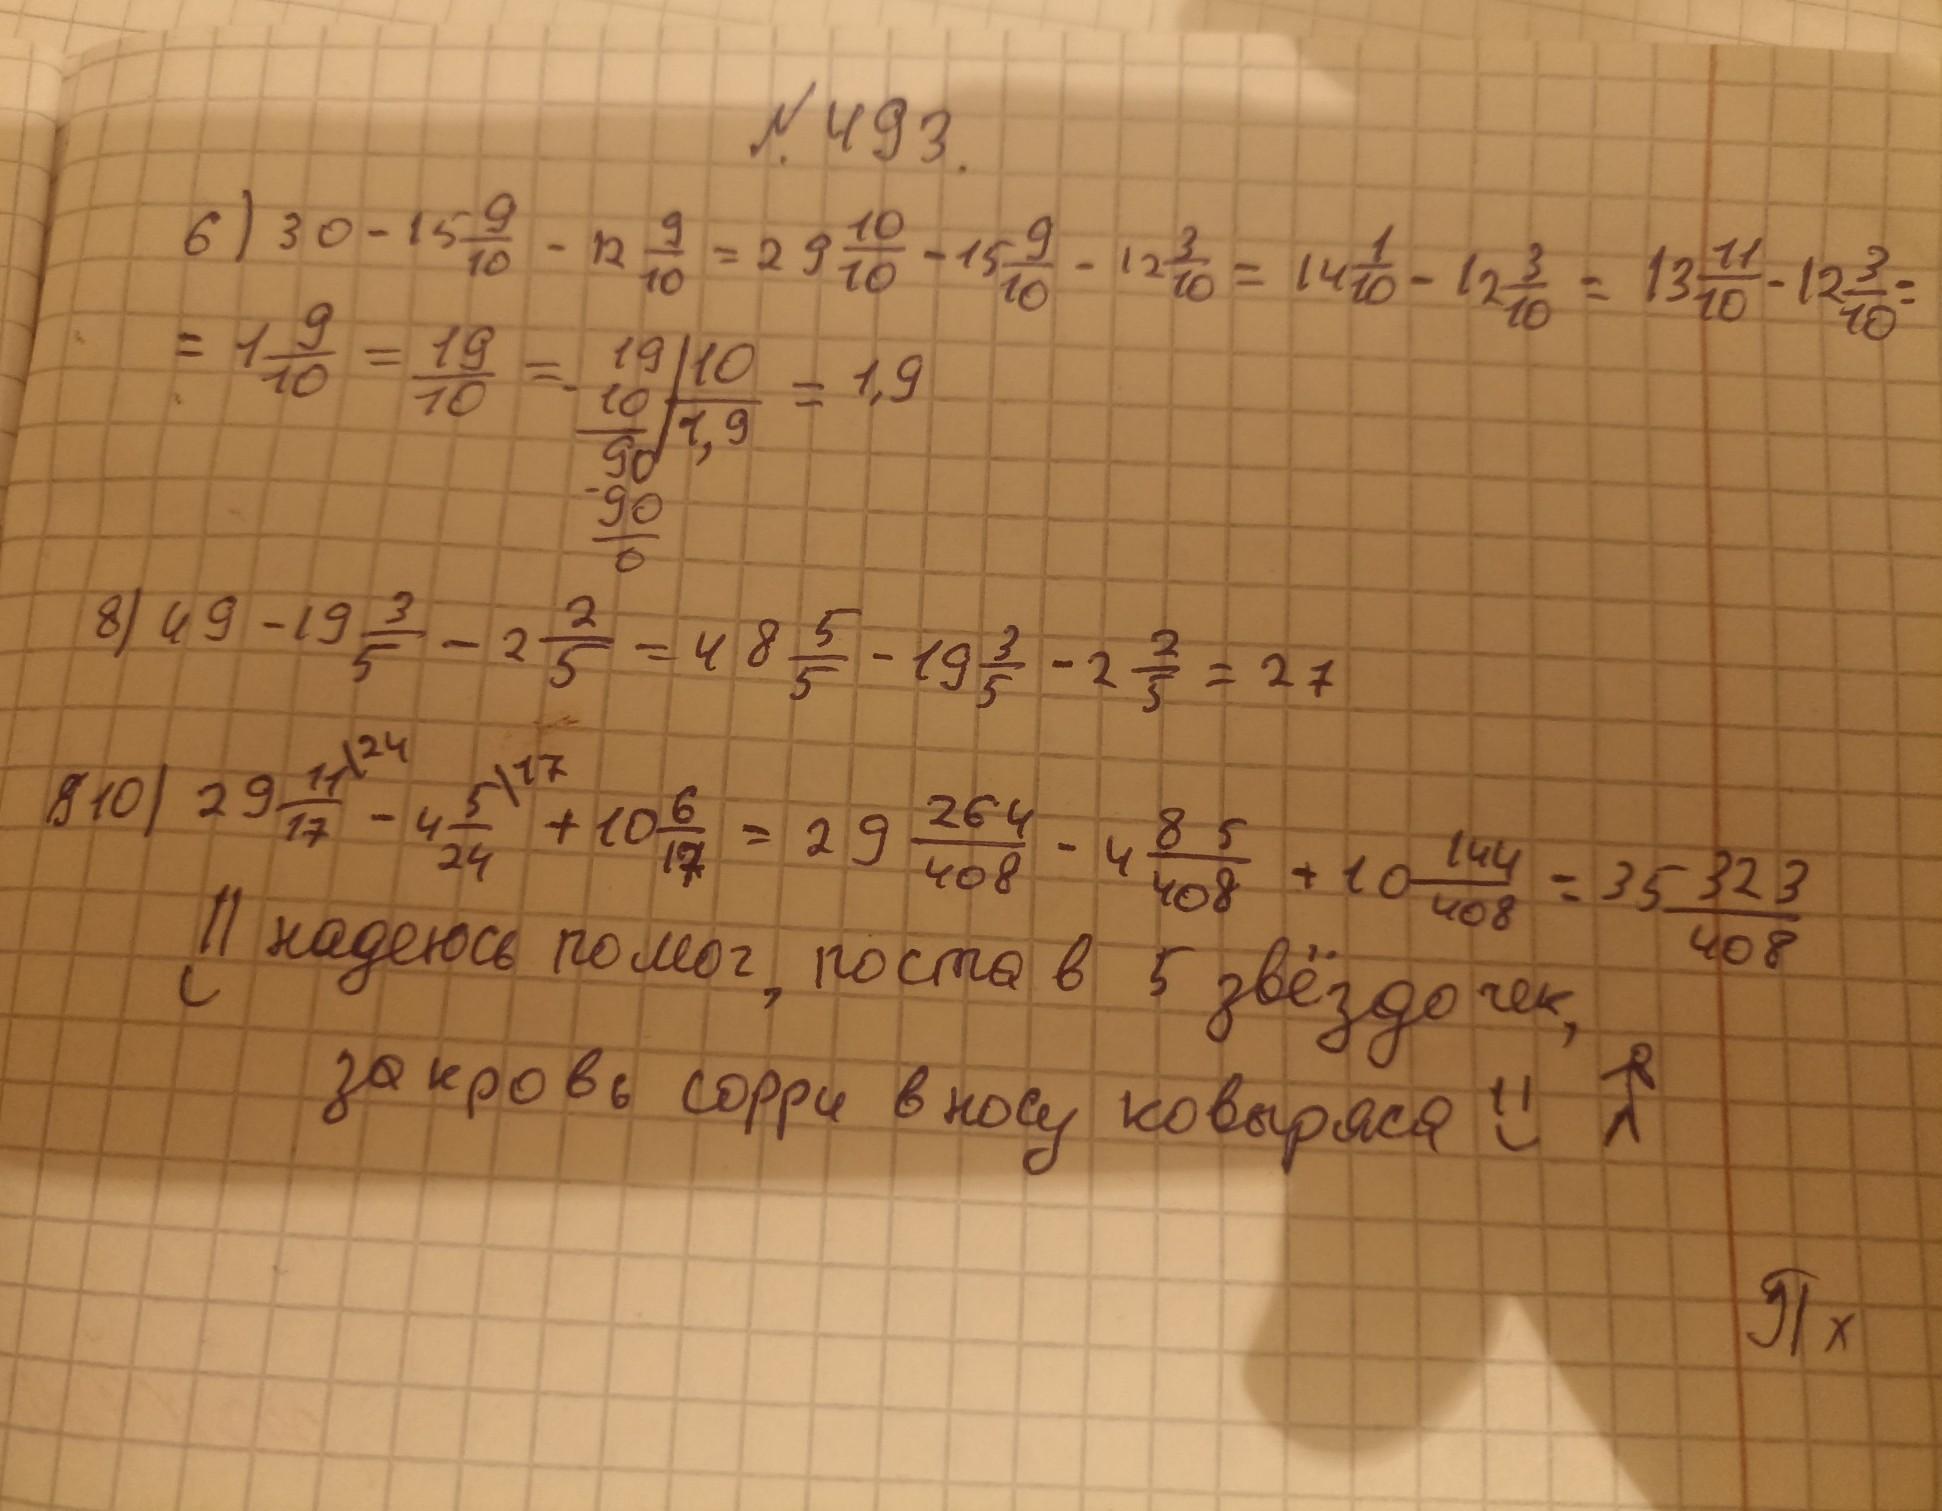 №. 493.
6) 30 - 15 9/10 - 12 9/10 = 29 10/10 - 15 9/10 - 12 3/10 = 14 1/10 - 12 3/10 = 13 11/10 - 12 3/10 =
= 1 9/10 = 19/10 = 19 | 10 = 1,9
- 10 | 1,9
90
- 90
0
8) 49 - 19 3/5 - 2 2/5 = 48 5/5 - 19 3/5 - 2 2/5 = 27
10) 29 11/17 \24 - 4 5/24 \17 + 10 6/17 = 29 264/408 - 4 85/408 + 10 144/408 = 35 323/408
надеюсь помог, постав 5 звёздочек,
за кровь сорри в носу ковыряся